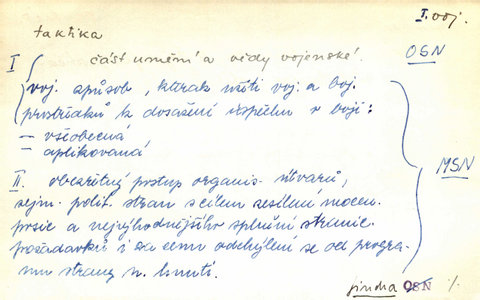 I. voj.
taktika
OSN
I část umění a vědy vojenské.
voj. způsob, kterak užíti voj. a boj.
prostředků k dosažení úspěchu v boji:
– všeobecná
– aplikovaná
MSN
II. obezřetný postup organis. útvarů,
zejm. polit. stran s cílem zesílení mocen.
posice a nejvýhodnějšího splnění stranic.
požadavků i za cenu odchýlení se od progra-
mu strany n. hnutí.
jindra OSN